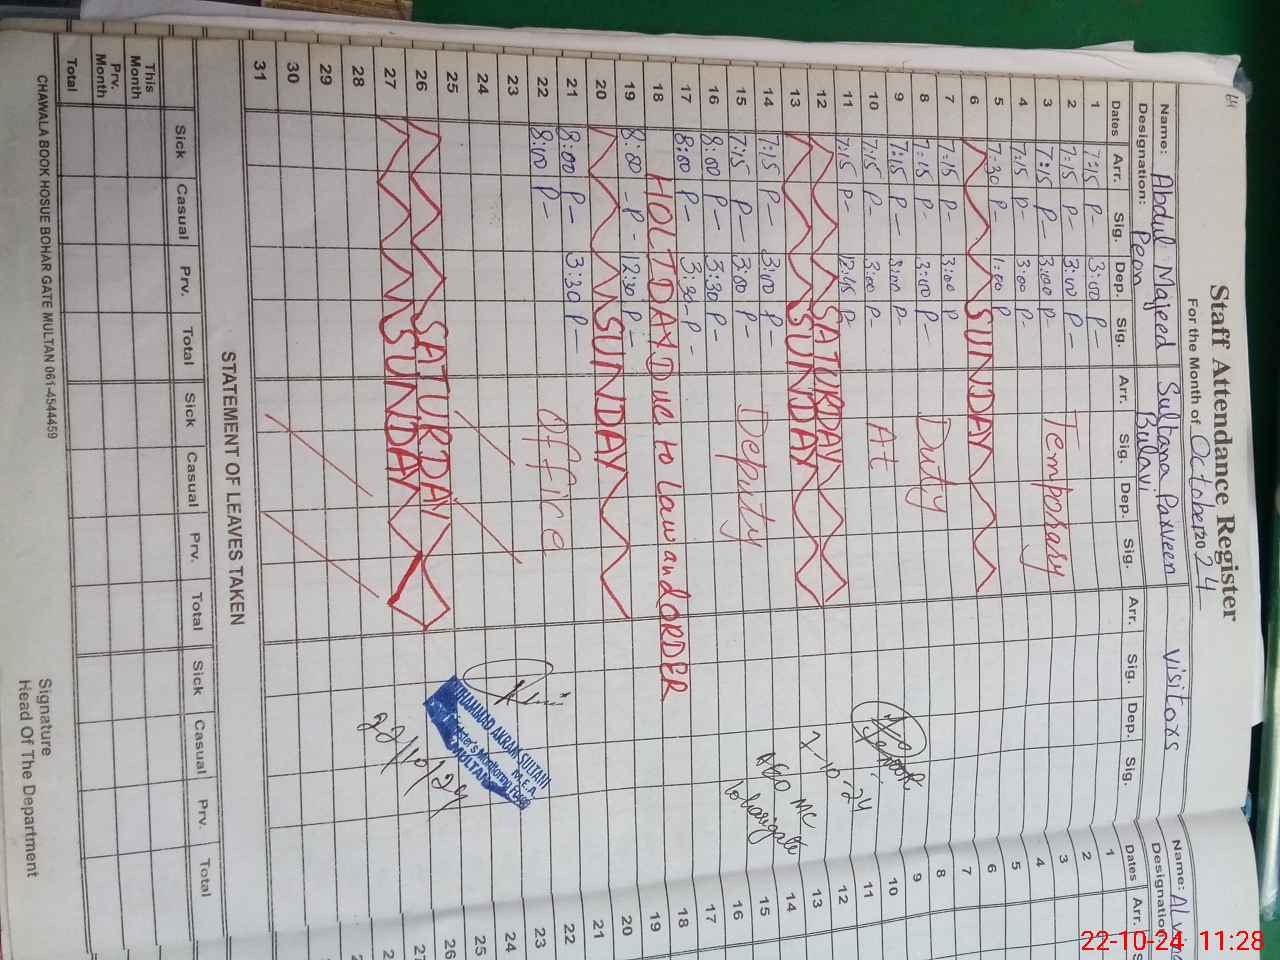 64
Staff Attendance Register
For the Month of October 2024
Name: Abdul Majeed Sultana Parveen Visitors
Designation: Peon Bulavi
Dates Arr. Sig. Dep. Sig. Arr. Sig. Dep. Sig. Arr. Sig. Dep. Sig.
1 7:15 P- 3:00 P-
2 7:15 P- 3:00 P-
3 7:15 P- 3:00 P- Temporary
4 7:15 P- 3:00 P-
5 7:30 P- 1:00 P
6 SUNDAY
7 7:15 P- 3:00 P
8 7:15 P- 3:00 P- Duty
9 7:15 P- 3:00 P-
10 7:15 P- 3:00 P- At
11 7:15 P- 12:45 P-
12 SATURDAY
13 SUNDAY
14 7:15 P- 3:00 P-
15 7:15 P- 3:00 P- Deputy
16 8:00 P- 3:30 P-
17 8:00 P- 3:30-P-
18 HOLIDAY Due to law and ORDER
19 8:00 -P- 12:30 P-
20 SUNDAY
21 8:00 P- 3:30 P-
22 8:00 P- Office
23
24
25
26 SATURDAY
27 SUNDAY
28
29
30
31
7-10-24
AEO MC
Loharigate
MUHAMMAD AKRAM SULTANI
M.E.A.
Monitoring Force
MULTAN
22/10/24
STATEMENT OF LEAVES TAKEN
Sick Casual Prv. Total Sick Casual Prv. Total Sick Casual Prv. Total
This Month
Prv. Month
Total
Signature
Head Of The Department
CHAWALA BOOK HOSUE BOHAR GATE MULTAN 061-4544459
Name:
Designation
Dates Arr.
1
2
3
4
5
6
7
8
9
10
11
12
13
14
15
16
17
18
19
20
21
22
23
24
25
26
22-10-24 11:28